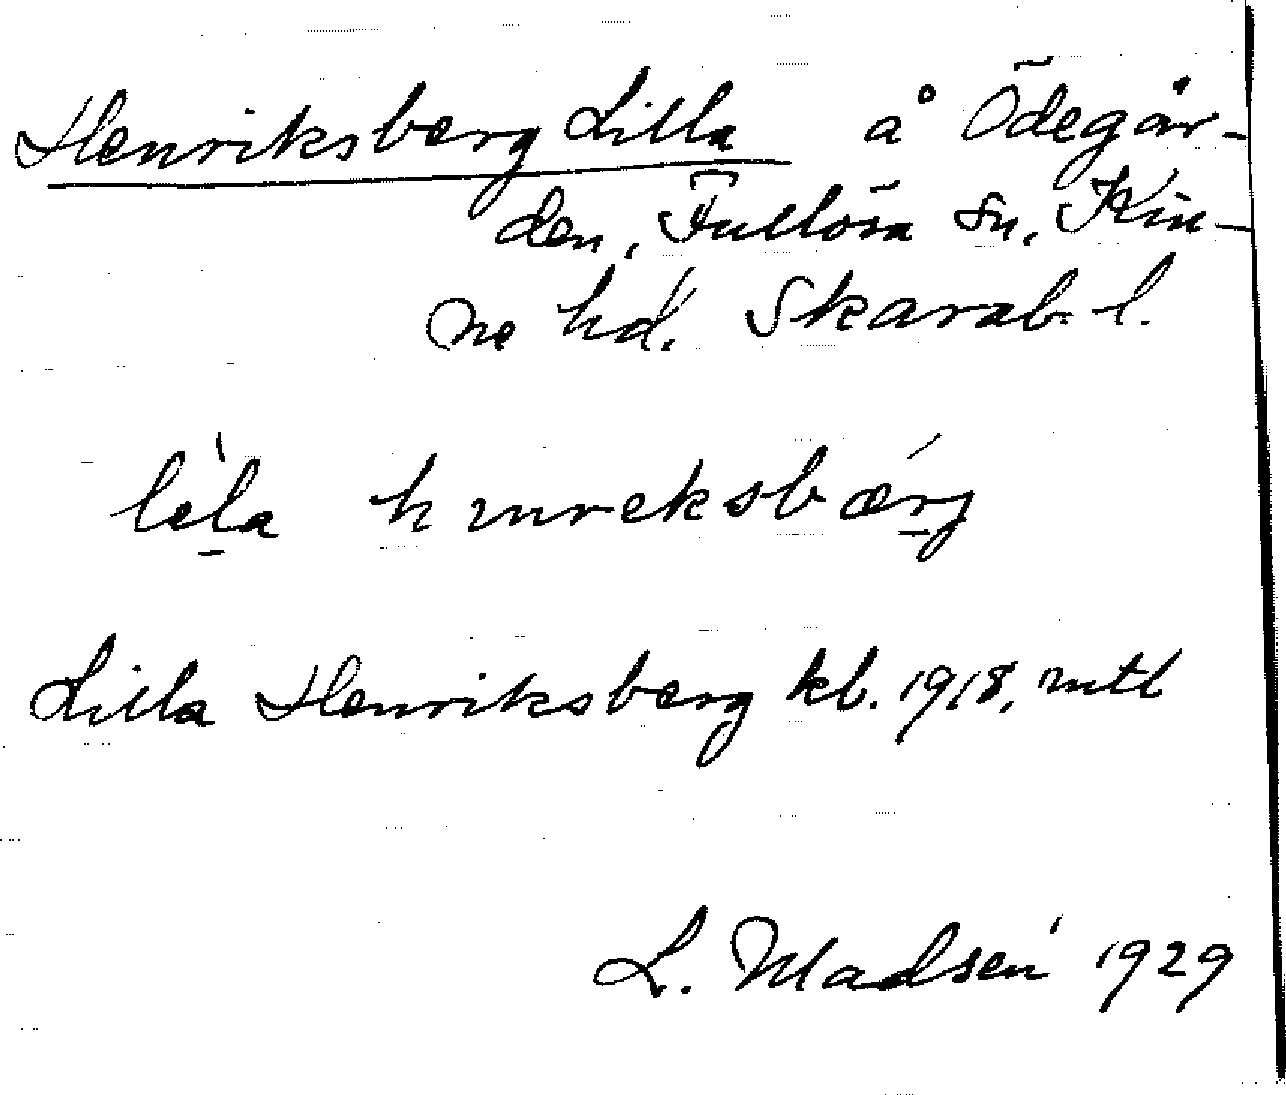 Henriksberg Lilla å Ödegår-
den, Fullösa sn, Kin-
ne hd. Skarab. l.
lèla henreksbǽrj
Lilla Henriksberg kb. 1918, mtl
L. Madsén 1929